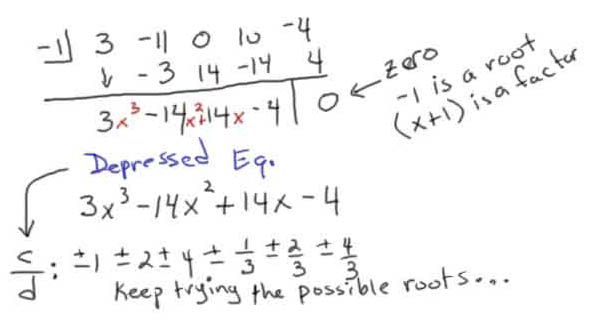 -1⟌ 3 -11 0 10 -4
↓ -3 14 -14 4
3x³-14x²+14x-4 | 0 ← zero
-1 is a root
(x+1) is a factor
Depressed Eq.
3x³-14x²+14x-4
c/d: ±1 ±2 ±4 ± 1/3 ± 2/3 ± 4/3
Keep trying the possible roots....